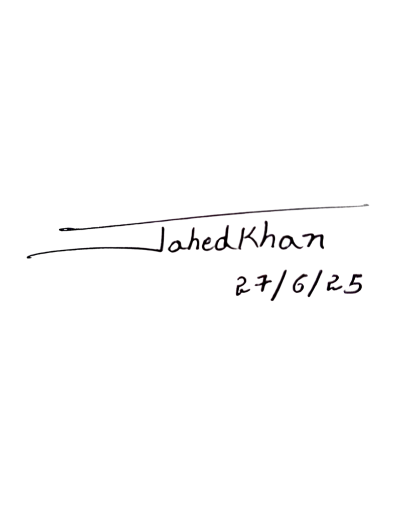 JahedKhan
27/6/25